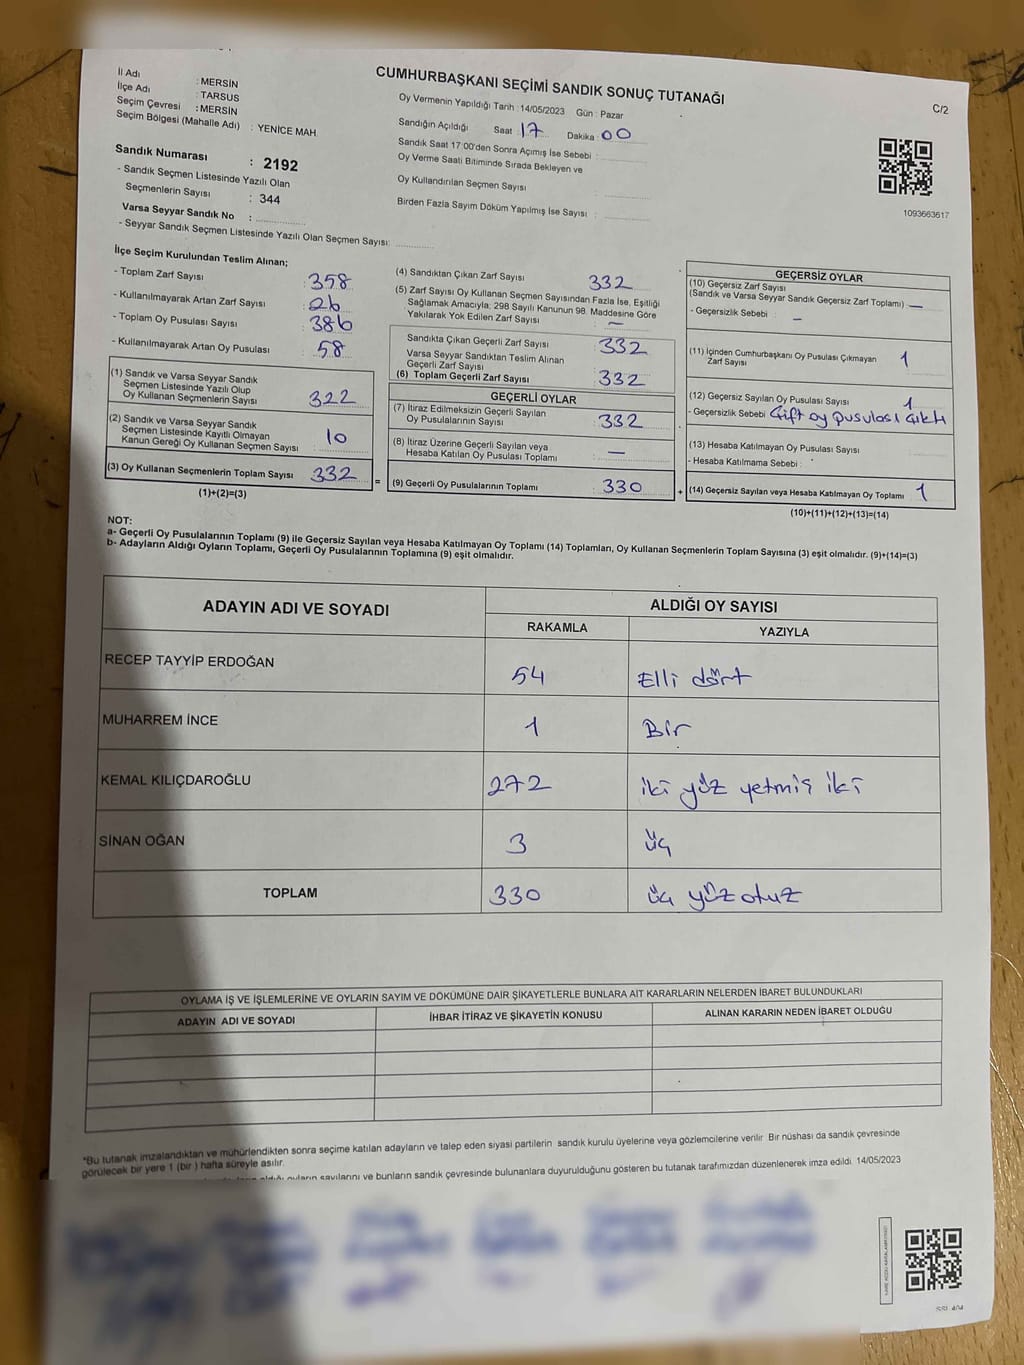 CUMHURBAŞKANI SEÇİMİ SANDIK SONUÇ TUTANAĞI
C/2
İl Adı : MERSİN
İlçe Adı : TARSUS
Seçim Çevresi : MERSİN
Seçim Bölgesi (Mahalle Adı) : YENİCE MAH.
Sandık Numarası : 2192
- Sandık Seçmen Listesinde Yazılı Olan
Seçmenlerin Sayısı : 344
Varsa Seyyar Sandık No :
- Seyyar Sandık Seçmen Listesinde Yazılı Olan Seçmen Sayısı:
Oy Vermenin Yapıldığı Tarih : 14/05/2023 Gün : Pazar
Sandığın Açıldığı Saat : 17 Dakika : 00
Sandık Saat 17:00'den Sonra Açımış İse Sebebi :
Oy Verme Saati Bitiminde Sırada Bekleyen ve
Oy Kullandırılan Seçmen Sayısı
Birden Fazla Sayım Döküm Yapılmış İse Sayısı :
1093663617
İlçe Seçim Kurulundan Teslim Alınan;
- Toplam Zarf Sayısı : 358
- Kullanılmayarak Artan Zarf Sayısı : 26
- Toplam Oy Pusulası Sayısı : 386
- Kullanılmayarak Artan Oy Pusulası : 58
(1) Sandık ve Varsa Seyyar Sandık
Seçmen Listesinde Yazılı Olup
Oy Kullanan Seçmenlerin Sayısı : 322
(2) Sandık ve Varsa Seyyar Sandık
Seçmen Listesinde Kayıtlı Olmayan
Kanun Gereği Oy Kullanan Seçmen Sayısı : 10
(3) Oy Kullanan Seçmenlerin Toplam Sayısı 332
(1)+(2)=(3)
=
(4) Sandıktan Çıkan Zarf Sayısı 332
(5) Zarf Sayısı Oy Kullanan Seçmen Sayısından Fazla İse, Eşitliği
Sağlamak Amacıyla; 298 Sayılı Kanunun 98. Maddesine Göre
Yakılarak Yok Edilen Zarf Sayısı : —
Sandıkta Çıkan Geçerli Zarf Sayısı : 332
Varsa Seyyar Sandıktan Teslim Alınan
Geçerli Zarf Sayısı
(6) Toplam Geçerli Zarf Sayısı : 332
GEÇERLİ OYLAR
(7) İtiraz Edilmeksizin Geçerli Sayılan
Oy Pusulalarının Sayısı : 332
(8) İtiraz Üzerine Geçerli Sayılan veya
Hesaba Katılan Oy Pusulası Toplamı : —
(9) Geçerli Oy Pusulalarının Toplamı 330
+
GEÇERSİZ OYLAR
(10) Geçersiz Zarf Sayısı
(Sandık ve Varsa Seyyar Sandık Geçersiz Zarf Toplamı) : —
- Geçersizlik Sebebi : —
(11) İçinden Cumhurbaşkanı Oy Pusulası Çıkmayan
Zarf Sayısı 1
(12) Geçersiz Sayılan Oy Pusulası Sayısı 1
- Geçersizlik Sebebi Çift oy pusulası çıktı
(13) Hesaba Katılmayan Oy Pusulası Sayısı
- Hesaba Katılmama Sebebi :
(14) Geçersiz Sayılan veya Hesaba Katılmayan Oy Toplamı 1
(10)+(11)+(12)+(13)=(14)
NOT:
a- Geçerli Oy Pusulalarının Toplamı (9) ile Geçersiz Sayılan veya Hesaba Katılmayan Oy Toplamı (14) Toplamları, Oy Kullanan Seçmenlerin Toplam Sayısına (3) eşit olmalıdır. (9)+(14)=(3)
b- Adayların Aldığı Oyların Toplamı, Geçerli Oy Pusulalarının Toplamına (9) eşit olmalıdır.
ADAYIN ADI VE SOYADI
ALDIĞI OY SAYISI
RAKAMLA YAZIYLA
RECEP TAYYİP ERDOĞAN 54 Elli dört
MUHARREM İNCE 1 Bir
KEMAL KILIÇDAROĞLU 272 iki yüz yetmiş iki
SİNAN OĞAN 3 üç
TOPLAM 330 üç yüz otuz
OYLAMA İŞ VE İŞLEMLERİNE VE OYLARIN SAYIM VE DÖKÜMÜNE DAİR ŞİKAYETLERLE BUNLARA AİT KARARLARIN NELERDEN İBARET BULUNDUKLARI
ADAYIN ADI VE SOYADI İHBAR İTİRAZ VE ŞİKAYETİN KONUSU ALINAN KARARIN NEDEN İBARET OLDUĞU
*Bu tutanak imzalandıktan ve mühürlendikten sonra seçime katılan adayların ve talep eden siyasi partilerin sandık kurulu üyelerine veya gözlemcilerine verilir. Bir nüshası da sandık çevresinde
görülecek bir yere 1 (bir ) hafta süreyle asılır.
aldığı oyların sayılarını ve bunların sandık çevresinde bulunanlara duyurulduğunu gösteren bu tutanak tarafımızdan düzenlenerek imza edildi. 14/05/2023